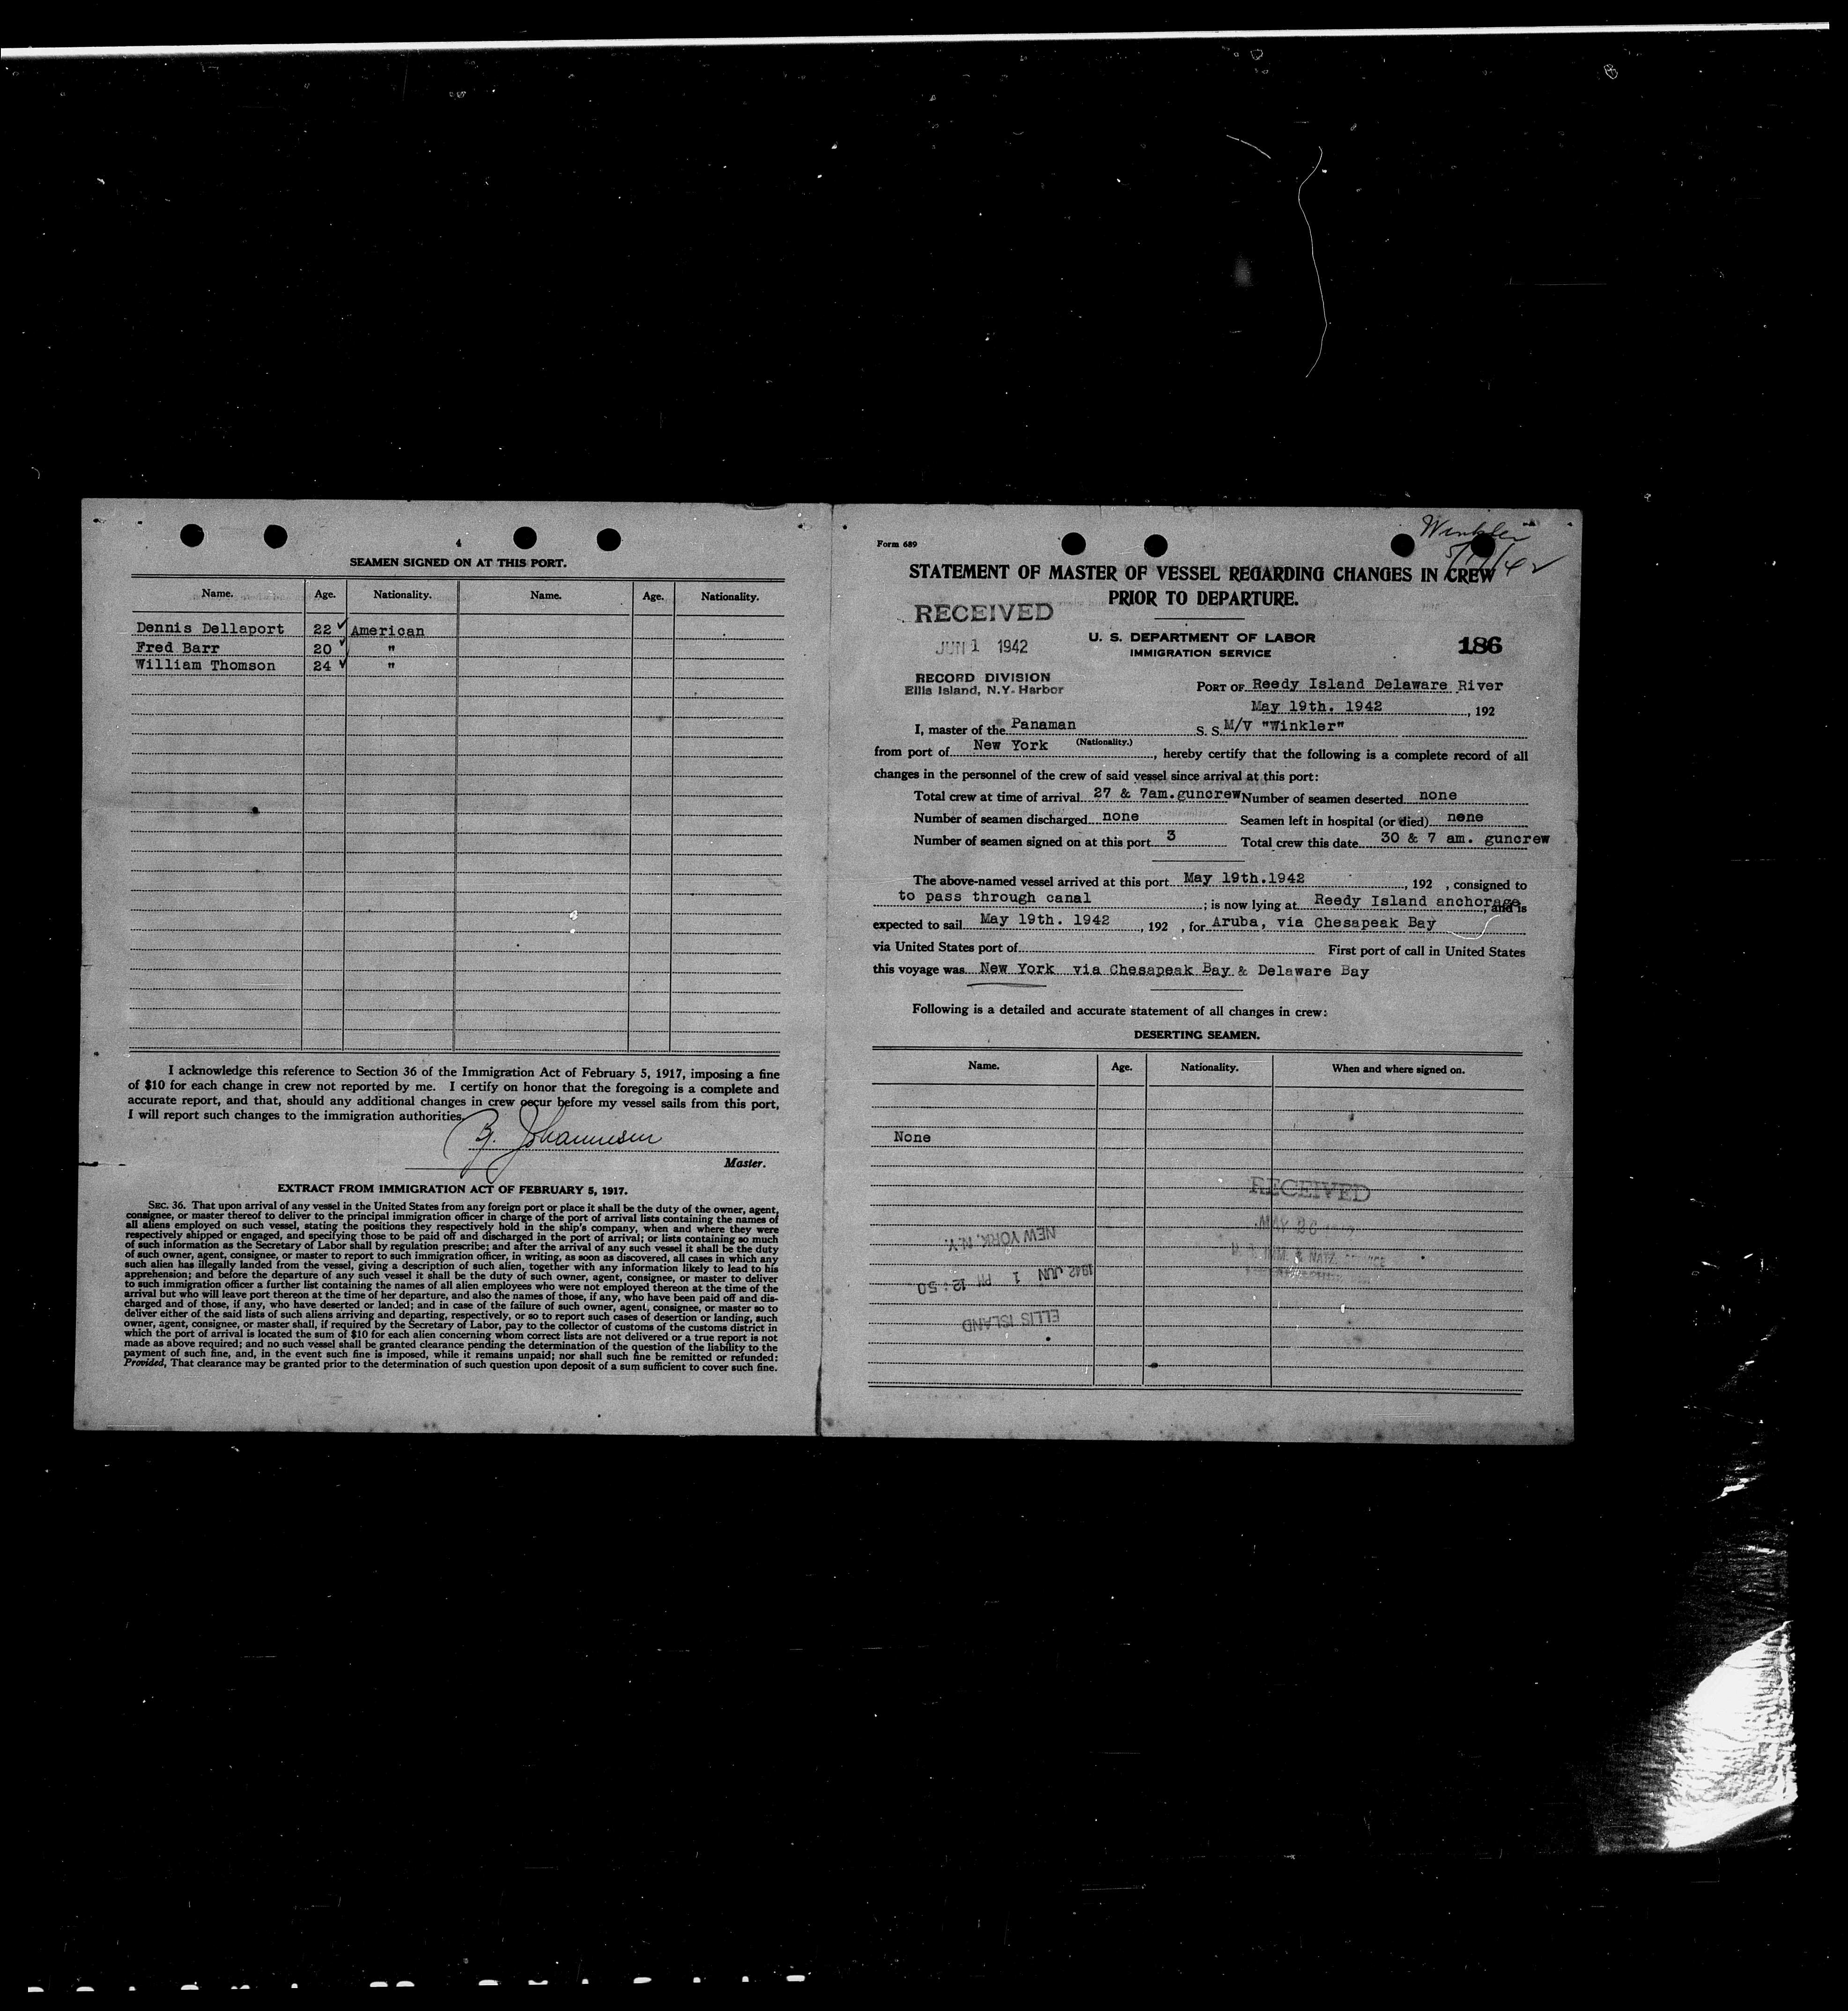 4
SEAMEN SIGNED ON AT THIS PORT.
Name. Age. Nationality. Name. Age. Nationality.
Dennis Dellaport 22 ✓ American
Fred Barr 20 ✓ "
William Thomson 24 ✓ "
I acknowledge this reference to Section 36 of the Immigration Act of February 5, 1917, imposing a fine
of $10 for each change in crew not reported by me. I certify on honor that the foregoing is a complete and
accurate report, and that, should any additional changes in crew occur before my vessel sails from this port,
I will report such changes to the immigration authorities.
Johannesen
Master.
EXTRACT FROM IMMIGRATION ACT OF FEBRUARY 5, 1917.
SEC. 36. That upon arrival of any vessel in the United States from any foreign port or place it shall be the duty of the owner, agent,
consignee, or master thereof to deliver to the principal immigration officer in charge of the port of arrival lists containing the names of
all aliens employed on such vessel, stating the positions they respectively hold in the ship's company, when and where they were
respectively shipped or engaged, and specifying those to be paid off and discharged in the port of arrival; or lists containing so much
of such information as the Secretary of Labor shall by regulation prescribe; and after the arrival of any such vessel it shall be the duty
of such owner, agent, consignee, or master to report to such immigration officer, in writing, as soon as discovered, all cases in which any
such alien has illegally landed from the vessel, giving a description of such alien, together with any information likely to lead to his
apprehension; and before the departure of any such vessel it shall be the duty of such owner, agent, consignee, or master to deliver
to such immigration officer a further list containing the names of all alien employees who were not employed thereon at the time of the
arrival but who will leave port thereon at the time of her departure, and also the names of those, if any, who have been paid off and dis-
charged and of those, if any, who have deserted or landed; and in case of the failure of such owner, agent, consignee, or master so to
deliver either of the said lists of such aliens arriving and departing, respectively, or so to report such cases of desertion or landing, such
owner, agent, consignee, or master shall, if required by the Secretary of Labor, pay to the collector of customs of the customs district in
which the port of arrival is located the sum of $10 for each alien concerning whom correct lists are not delivered or a true report is not
made as above required; and no such vessel shall be granted clearance pending the determination of the question of the liability to the
payment of such fine, and, in the event such fine is imposed, while it remains unpaid; nor shall such fine be remitted or refunded:
Provided, That clearance may be granted prior to the determination of such question upon deposit of a sum sufficient to cover such fine.
Winkler
Form 689
STATEMENT OF MASTER OF VESSEL REGARDING CHANGES IN CREW
PRIOR TO DEPARTURE.
RECEIVED
JUN 1 1942
RECORD DIVISION
Ellis Island, N.Y. Harbor
U. S. DEPARTMENT OF LABOR
IMMIGRATION SERVICE
186
PORT OF Reedy Island Delaware River
May 19th. 1942, 192
I, master of the Panaman S. S. M/V "Winkler"
(Nationality.)
from port of New York, hereby certify that the following is a complete record of all
changes in the personnel of the crew of said vessel since arrival at this port:
Total crew at time of arrival 27 & 7am.guncrew Number of seamen deserted none
Number of seamen discharged none Seamen left in hospital (or died) none
Number of seamen signed on at this port 3 Total crew this date 30 & 7 am. guncrew
The above-named vessel arrived at this port May 19th.1942, 192 , consigned to
to pass through canal ; is now lying at Reedy Island anchorage, and is
expected to sail May 19th. 1942, 192 , for Aruba, via Chesapeak Bay
via United States port of First port of call in United States
this voyage was New York via Chesapeak Bay & Delaware Bay
Following is a detailed and accurate statement of all changes in crew:
DESERTING SEAMEN.
Name. Age. Nationality. When and where signed on.
None
RECEIVED
NEW YORK, N.Y.
1942 JUN 1 PM 12:50
ELLIS ISLAND